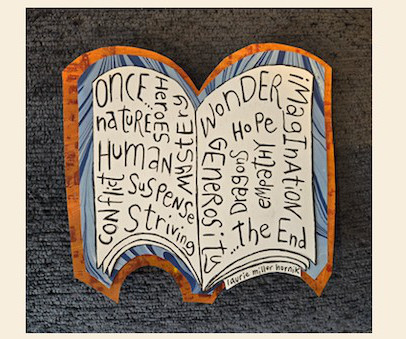 ONCE...
HEROES
MYSTERY
natuREES
HUMAN
CONflict
SUSPENSE
StRiving
WONDER
HOPE
GENEROSITY
DRAGONS
empathy
iMagInatION
...the End
laurie miller hornik